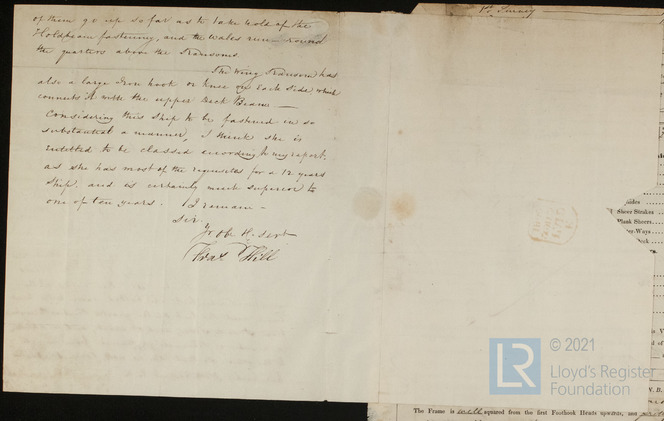 of them go up so far as to take hold of the
Holdbeam fastening, and the Wales run round
the quarters above the Transoms.
The Wing Transom has
also a large Iron hook or Knee on Each Side, which
connects it with the upper Deck Beams —
Considering this Ship to be fastened in so
substantial a manner, I think she is
entitled to be classed according to my report,
as she has most of the requisites for a 12 years
Ship, and is certainly much superior to
one of ten years. I remain —
Sir
Yr Obt H. Sert
Thos Hill
Sheer Strakes
Plank Sheers
© 2021
LR
Lloyd's Register
Foundation
N. B.
The Frame is well squared from the first Foothook Heads upwards, and